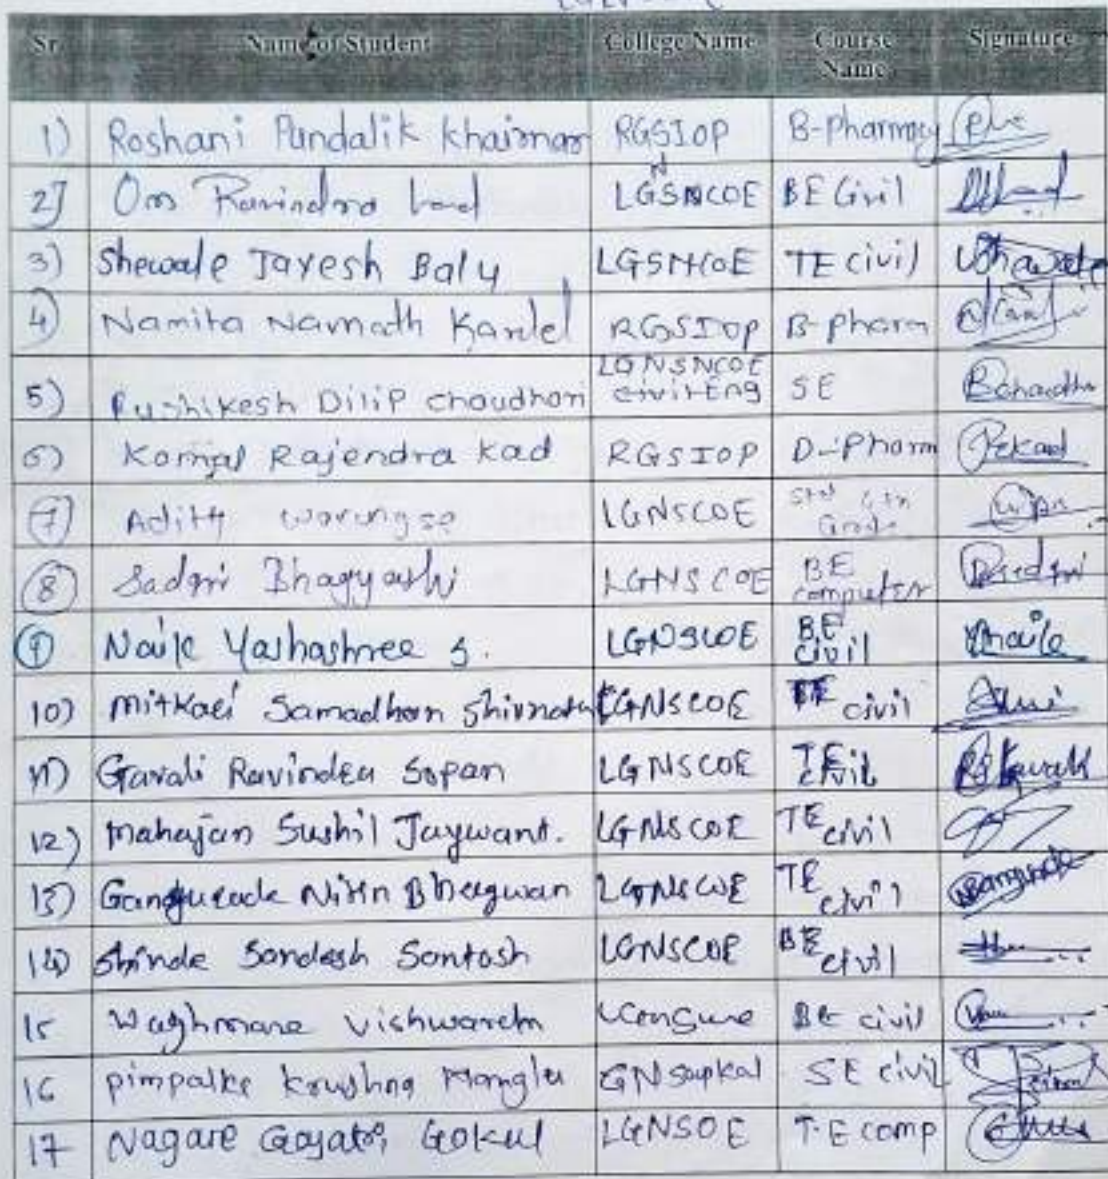 Sr. Name of Student College Name Course Name Signature
1) Roshani Pundalik Khairnar RGSIOP B-Pharmacy
2] Om Ravindra Lad LGSNCOE BE Civil
3) Shewale Jayesh Balu LGSNCOE TE civil
4) Namita Navnath Kardel RGSIOP B-Pharm
5) Rushikesh Dilip Choudhari LGNSNCOE civil Eng SE
6) Komal Rajendra Kad RGSIOP D-Pharm
7) Aditi LGNSCOE
8) Sadgir Bhagyashri LGNSCOE BE computer
9 Naik Yashashree S. LGNSCOE BE civil
10) Mitkari Samadhan Shivnath LGNSCOE civil
11) Gavali Ravindra Sopan LGNSCOE TE civil
12) Mahajan Sushil Jaywant. LGNSCOE TE civil
13) Gangurde Nitin Bhagwan LGNSCOE TE civil
14) Shinde Sandesh Santosh LGNSCOE BE civil
15 Waghmare Vishwareth BE civil
16 pimpalke Krushna Manglu GNSapkal SE civil
17 Nagare Gayatri Gokul LGNSOE T.E comp